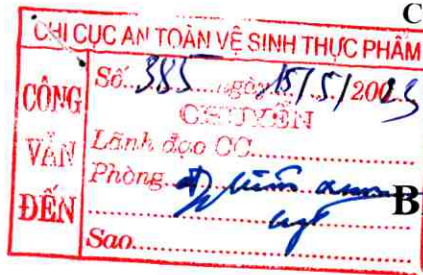 C
CHI CỤC AN TOÀN VỆ SINH THỰC PHẨM
CÔNG VĂN ĐẾN
Số 385 ngày 15/5/2023
CHUYỂN
Lãnh đạo CC
Phòng
B
Sao